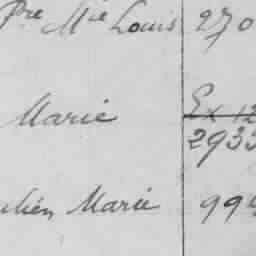 Pre Mie Louis 270
Marie Ex 12
2933
Marie 995